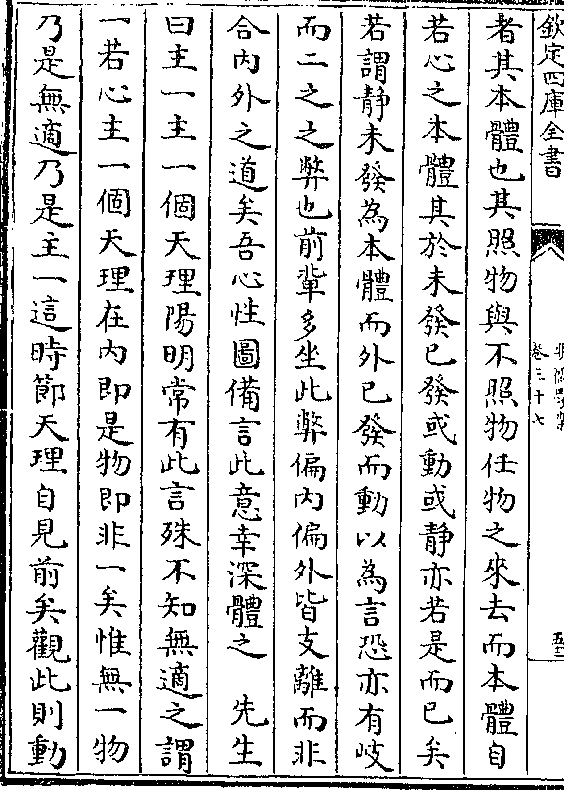 欽定四庫全書
卷三十七
者其本體也其照物與不照物任物之來去而本體自
若心之本體其於未發已發或動或靜亦若是而已矣
若謂靜未發為本體而外已發而動以為言恐亦有岐
而二之之弊也前輩多坐此弊偏內偏外皆支離而非
合內外之道矣吾心性圖備言此意幸深體之　先生
曰主一主一個天理陽明常有此言殊不知無適之謂
一若心主一個天理在內即是物即非一矣惟無一物
乃是無適乃是主一這時節天理自見前矣觀此則動